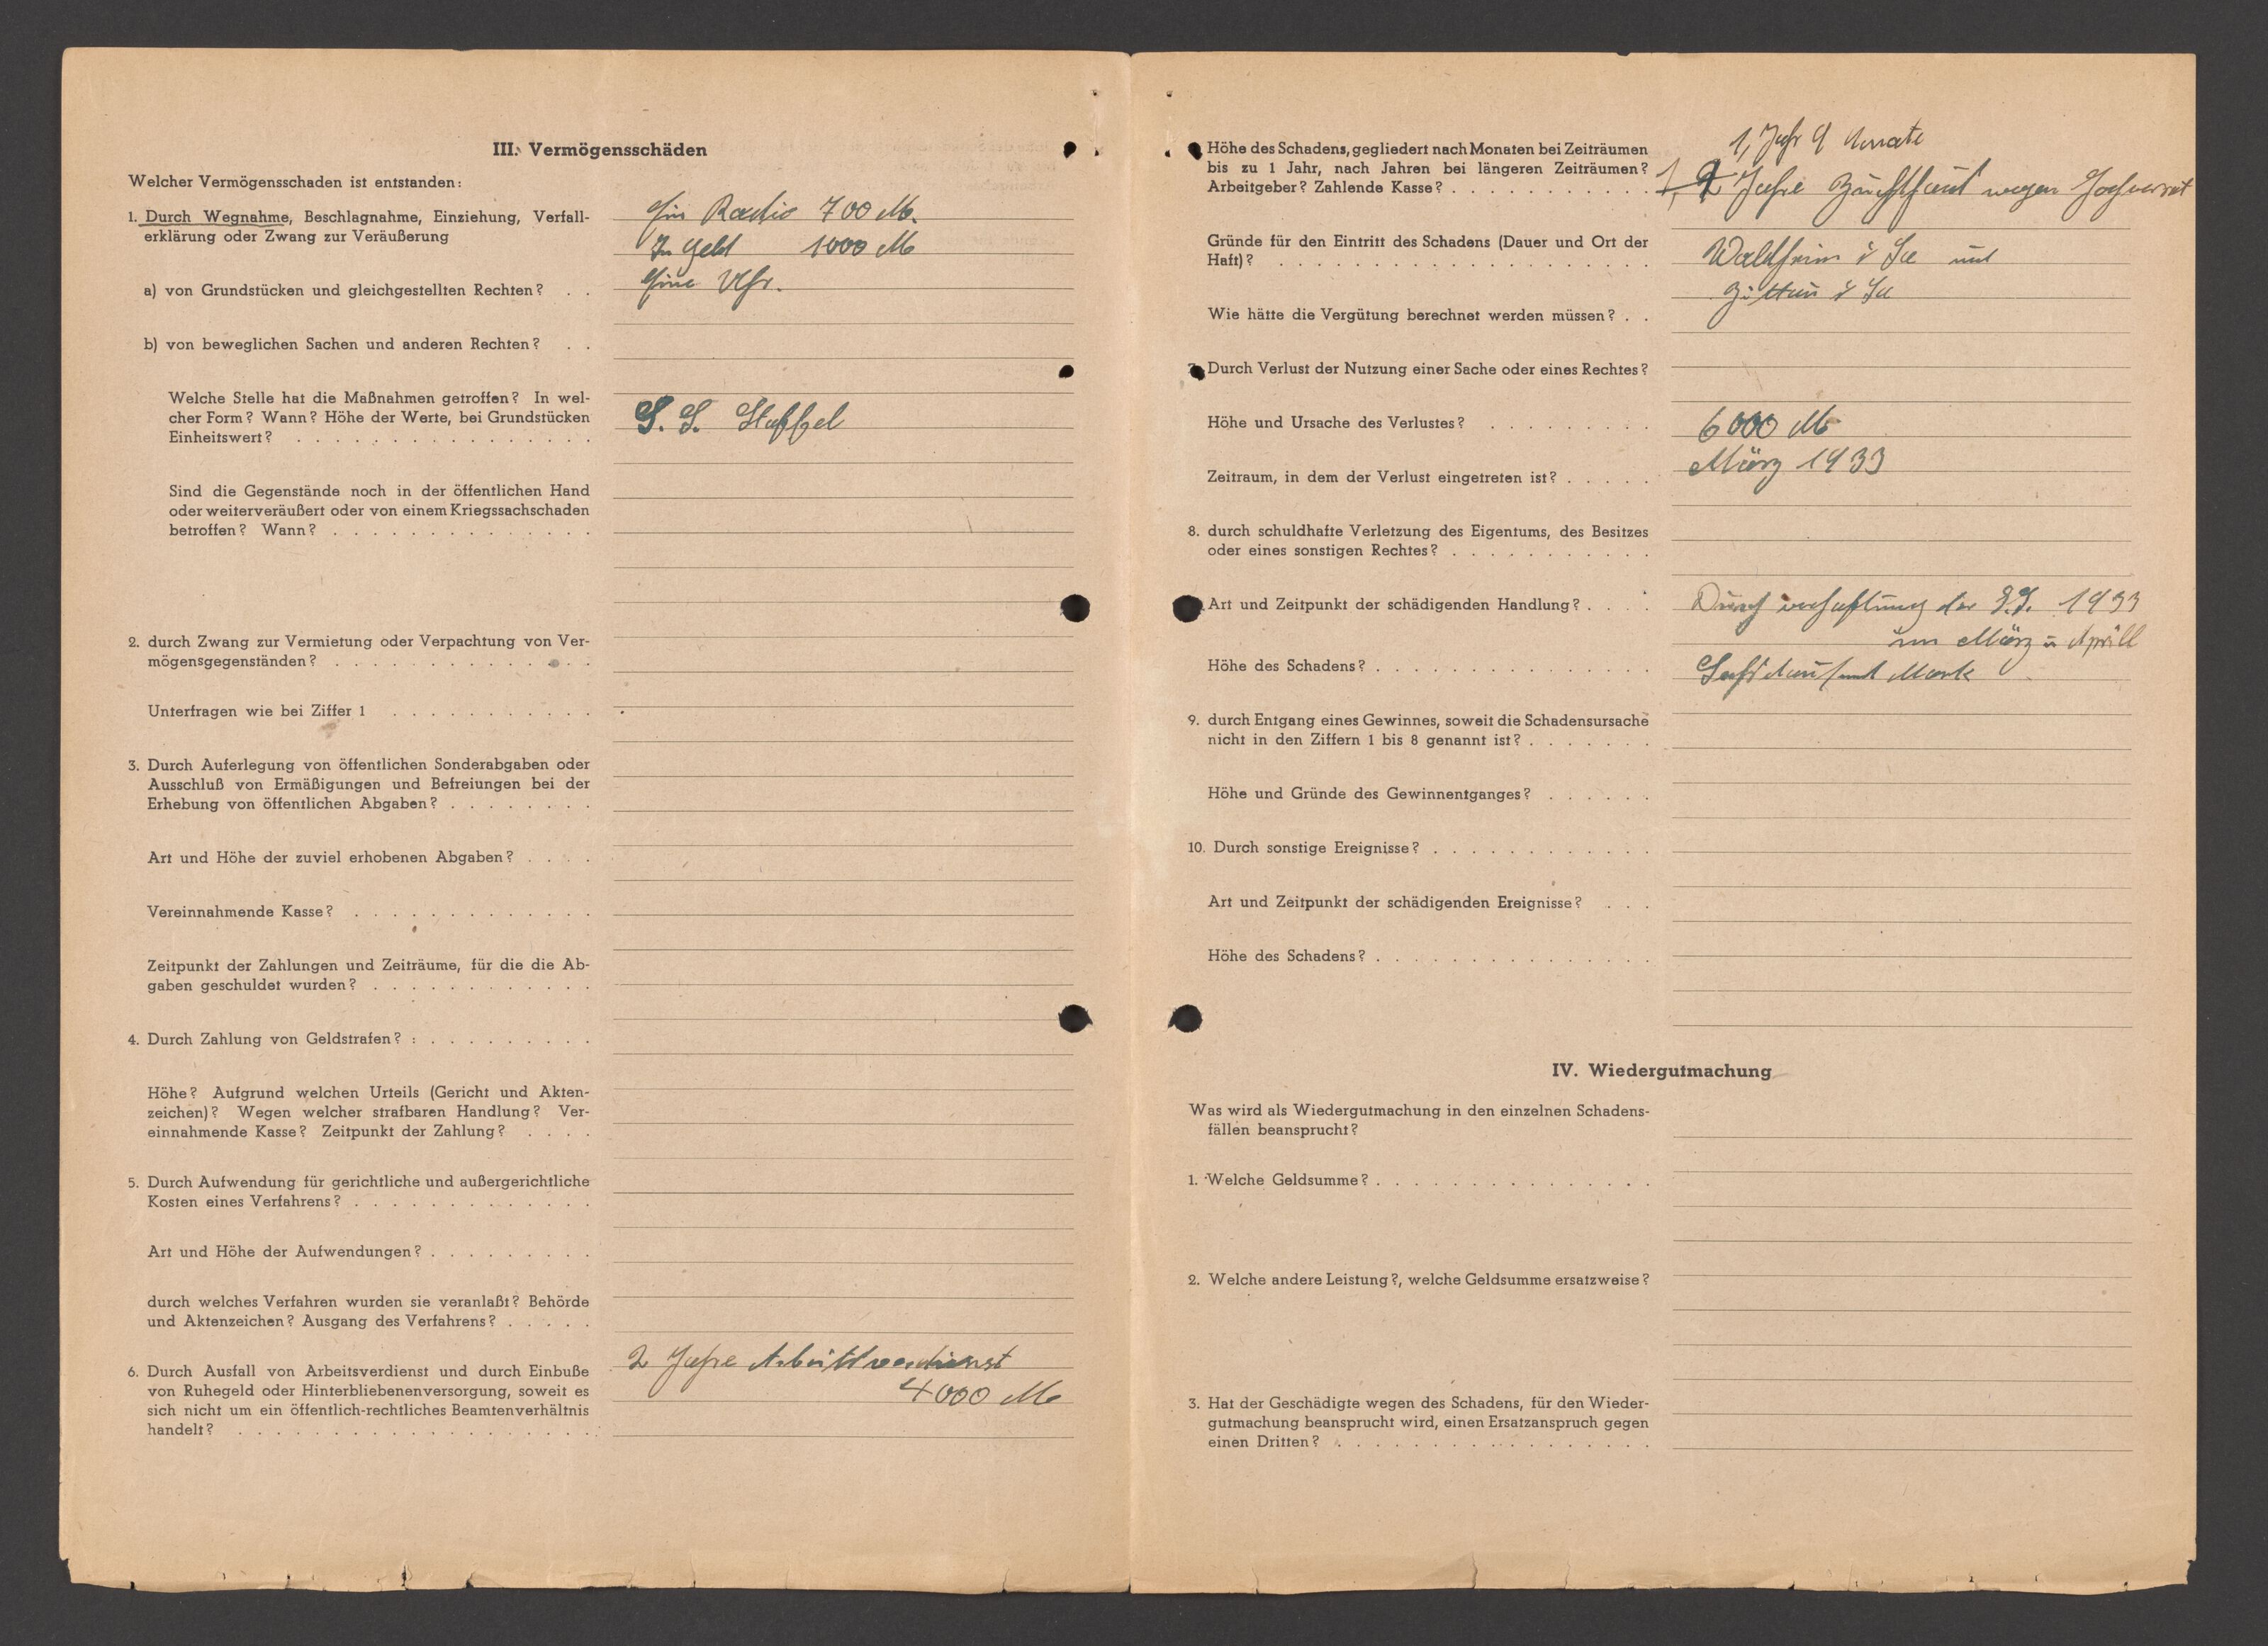 III. Vermögensschäden
Welcher Vermögensschaden ist entstanden:
1. Durch Wegnahme, Beschlagnahme, Einziehung, Verfall-
erklärung oder Zwang zur Veräußerung
Ein Radio 700 M.
In Geld 1000 M
Eine Uhr.
a) von Grundstücken und gleichgestellten Rechten? . .
b) von beweglichen Sachen und anderen Rechten? . .
Welche Stelle hat die Maßnahmen getroffen? In wel-
cher Form? Wann? Höhe der Werte, bei Grundstücken
Einheitswert? . . . . . . . . . . . . . . . .
S. S. Staffel
Sind die Gegenstände noch in der öffentlichen Hand
oder weiterveräußert oder von einem Kriegssachschaden
betroffen? Wann? . . . . . . . . . . . . . .
2. durch Zwang zur Vermietung oder Verpachtung von Ver-
mögensgegenständen? . . . . . . . . . . . . . .
Unterfragen wie bei Ziffer 1 . . . . . . . . . . .
3. Durch Auferlegung von öffentlichen Sonderabgaben oder
Ausschluß von Ermäßigungen und Befreiungen bei der
Erhebung von öffentlichen Abgaben? . . . . . . . .
Art und Höhe der zuviel erhobenen Abgaben? . . . .
Vereinnahmende Kasse? . . . . . . . . . . . . .
Zeitpunkt der Zahlungen und Zeiträume, für die die Ab-
gaben geschuldet wurden? . . . . . . . . . . . .
4. Durch Zahlung von Geldstrafen? : . . . . . . . . .
Höhe? Aufgrund welchen Urteils (Gericht und Akten-
zeichen)? Wegen welcher strafbaren Handlung? Ver-
einnahmende Kasse? Zeitpunkt der Zahlung? . . . .
5. Durch Aufwendung für gerichtliche und außergerichtliche
Kosten eines Verfahrens? . . . . . . . . . . . . .
Art und Höhe der Aufwendungen? . . . . . . . . .
durch welches Verfahren wurden sie veranlaßt? Behörde
und Aktenzeichen? Ausgang des Verfahrens? . . . . .
6. Durch Ausfall von Arbeitsverdienst und durch Einbuße
von Ruhegeld oder Hinterbliebenenversorgung, soweit es
sich nicht um ein öffentlich-rechtliches Beamtenverhältnis
handelt? . . . . . . . . . . . . . . . . . . .
2 Jahre Arbeitsverdienst
4000 M
Höhe des Schadens, gegliedert nach Monaten bei Zeiträumen
bis zu 1 Jahr, nach Jahren bei längeren Zeiträumen?
Arbeitgeber? Zahlende Kasse? . . . . . . . . . . .
1, Jahr 9 Monate
2 Jahre Zuchthaus wegen Hochverrat
Gründe für den Eintritt des Schadens (Dauer und Ort der
Haft)? . . . . . . . . . . . . . . . . . . .
Waldheim i Sa und
Zittau i Sa
Wie hätte die Vergütung berechnet werden müssen? . .
7. Durch Verlust der Nutzung einer Sache oder eines Rechtes?
Höhe und Ursache des Verlustes? . . . . . . . . .
6000 M
Zeitraum, in dem der Verlust eingetreten ist? . . . . .
März 1933
8. durch schuldhafte Verletzung des Eigentums, des Besitzes
oder eines sonstigen Rechtes? . . . . . . . . . . .
Art und Zeitpunkt der schädigenden Handlung? . . . .
Durch verhaftung der S.S. 1933
im März u Aprill
Höhe des Schadens? . . . . . . . . . . . . . . .
Sechstausend Mark
9. durch Entgang eines Gewinnes, soweit die Schadensursache
nicht in den Ziffern 1 bis 8 genannt ist? . . . . . . .
Höhe und Gründe des Gewinnentganges? . . . . . .
10. Durch sonstige Ereignisse? . . . . . . . . . . . .
Art und Zeitpunkt der schädigenden Ereignisse? . . .
Höhe des Schadens? . . . . . . . . . . . . . . .
IV. Wiedergutmachung
Was wird als Wiedergutmachung in den einzelnen Schadens-
fällen beansprucht?
1. Welche Geldsumme? . . . . . . . . . . . . . . .
2. Welche andere Leistung?, welche Geldsumme ersatzweise?
3. Hat der Geschädigte wegen des Schadens, für den Wieder-
gutmachung beansprucht wird, einen Ersatzanspruch gegen
einen Dritten? . . . . . . . . . . . . . . . . .